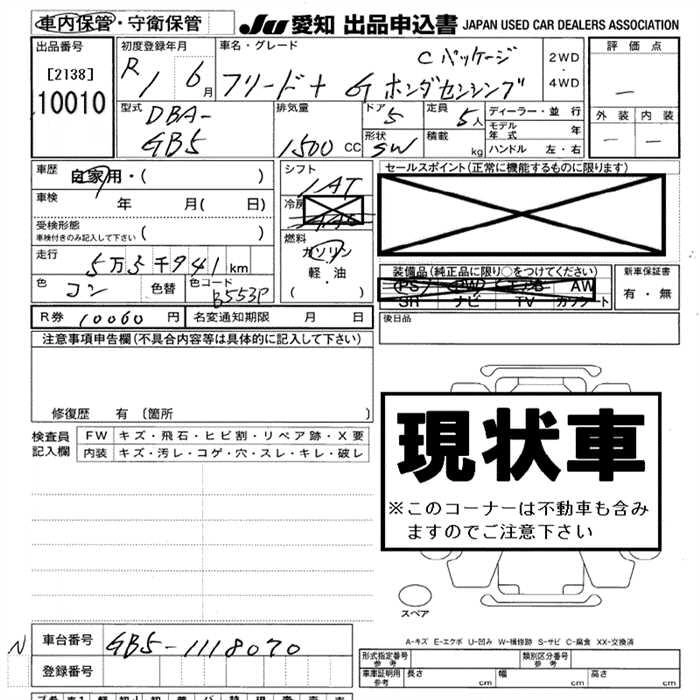 車内保管・守衛保管
JU 愛知 出品申込書 JAPAN USED CAR DEALERS ASSOCIATION
出品番号
[2138]
10010
初度登録年月
R 1 6月
車名・グレード
Cパッケージ
フリード+ G ホンダセンシング
2WD
・
4WD
評価点
—
外装 内装
— —
型式
DBA-
GB5
排気量
1500 CC
ドア
5
形状
SW
定員
5人
積載
kg
ディーラー・並行
モデル年式 年
ハンドル 左・右
車歴
自家用・( )
車検 年 月( 日)
受検形態
車検付きのみ記入して下さい ( )
走行
5万5千941km
色
コン
色替
色コード
B553P
シフト
IAT
冷房
燃料
ガソリン
軽・油
( )
セールスポイント(正常に機能するものに限ります)
装備品(純正品に限り○をつけてください)
PS PW エアB AW
SR ナビ TV カワシート
新車保証書
有・無
R券 10060円
名変通知期限 月 日
後日品
注意事項申告欄(不具合内容等は具体的に記入して下さい)
修復歴 有〔箇所 〕
検査員
記入欄
FW キズ・飛石・ヒビ割・リペア跡・X要
内装 キズ・汚レ・コゲ・穴・スレ・キレ・破レ
現状車
※このコーナーは不動車も含み
ますのでご注意下さい
スペア
A-キズ E-エクボ U-凹み W-補修跡 S-サビ C-腐食 XX-交換済
N
車台番号 GB5-1118070
登録番号
形式指定番号
参考
類別区分番号
参考
車庫証明用
参考
長さ cm
幅 cm
高さ cm